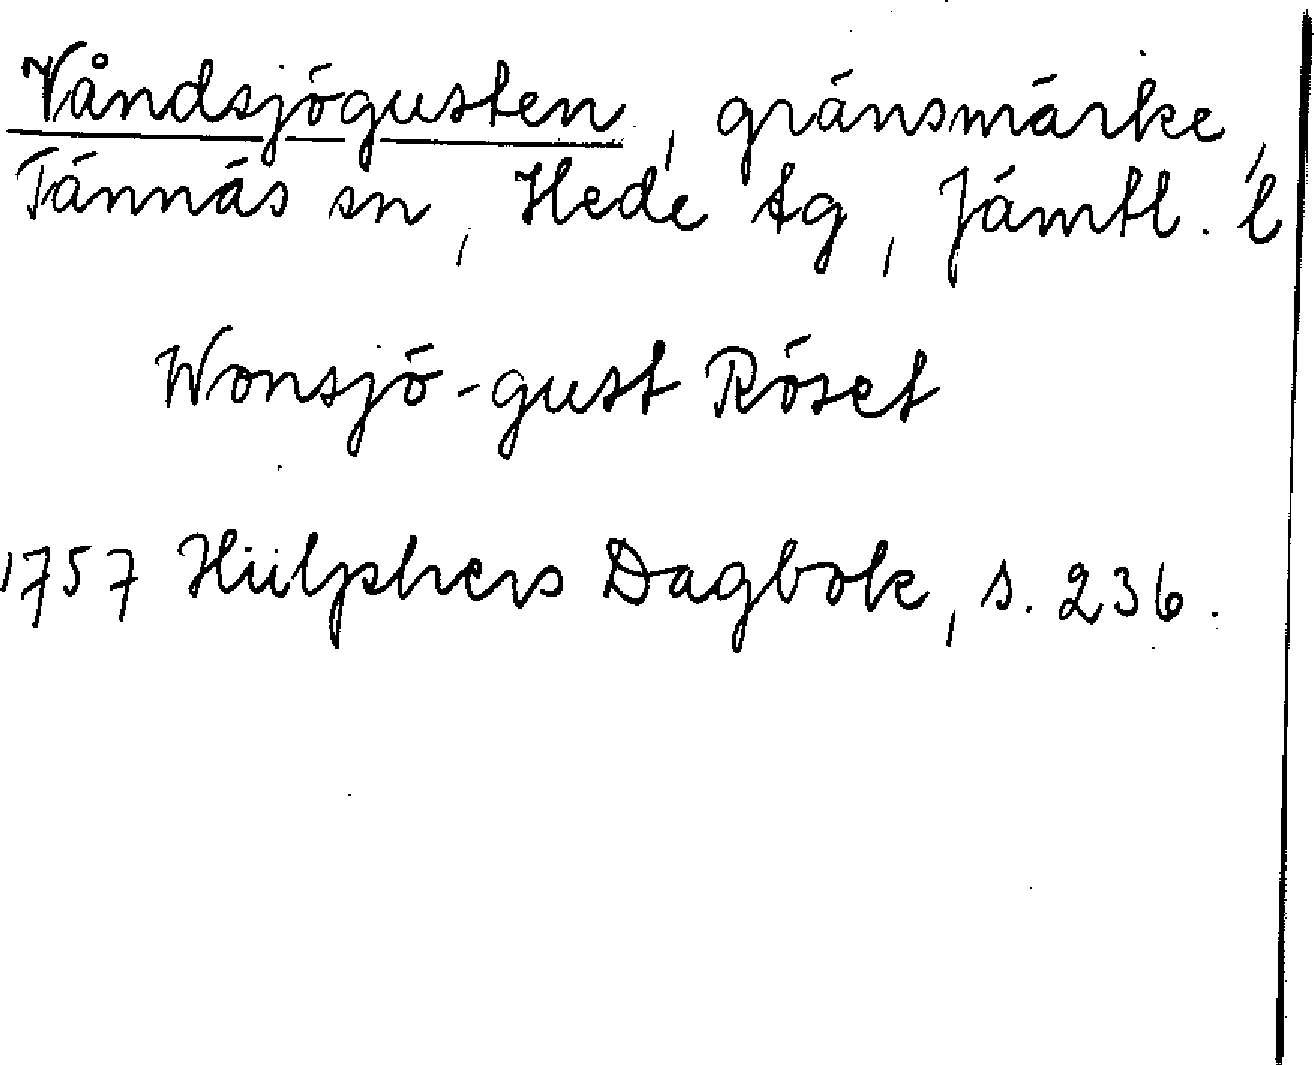 Våndsjögusten, gränsmärke,
Tännäs sn, Hede tg, Jämtl. l
Wonsjö-gust Röset
1757 Hülphers Dagbok, s. 236.